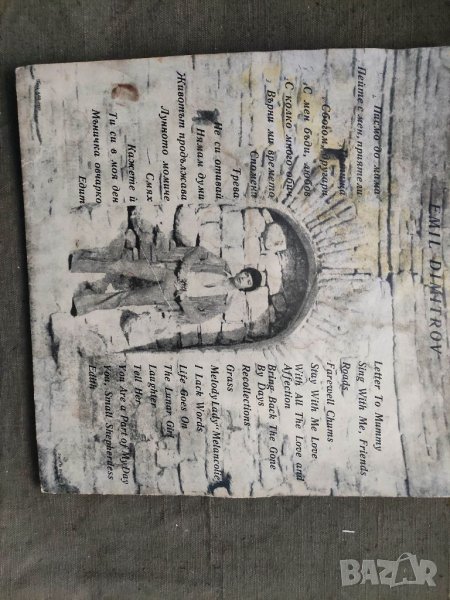 EMIL DIMITROV
Писмо до мама
Пейте с мен, приятели
Сбогом, другари
С мен бъди, любов
С колко много обич
Върни ми времето
Спомени
Трева
Не си отивай
Нямам думи
Животът продължава
Лунното момиче
Смях
Кажете ѝ
Ти си в моя ден
Мъничка овчарко
Едит
Letter To Mummy
Sing With Me, Friends
Roads
Farewell Chums
Stay With Me Love
With All The Love and
Affection
Bring Back The Gone
By Days
Recollections
Grass
Melody Lady "Melancolie"
I Lack Words
Life Goes On
The Lunar Girl
Laughter
Tell Her
You Are a Part of My Day
You, Small Shepherdess
Edith
BAZAR.bg